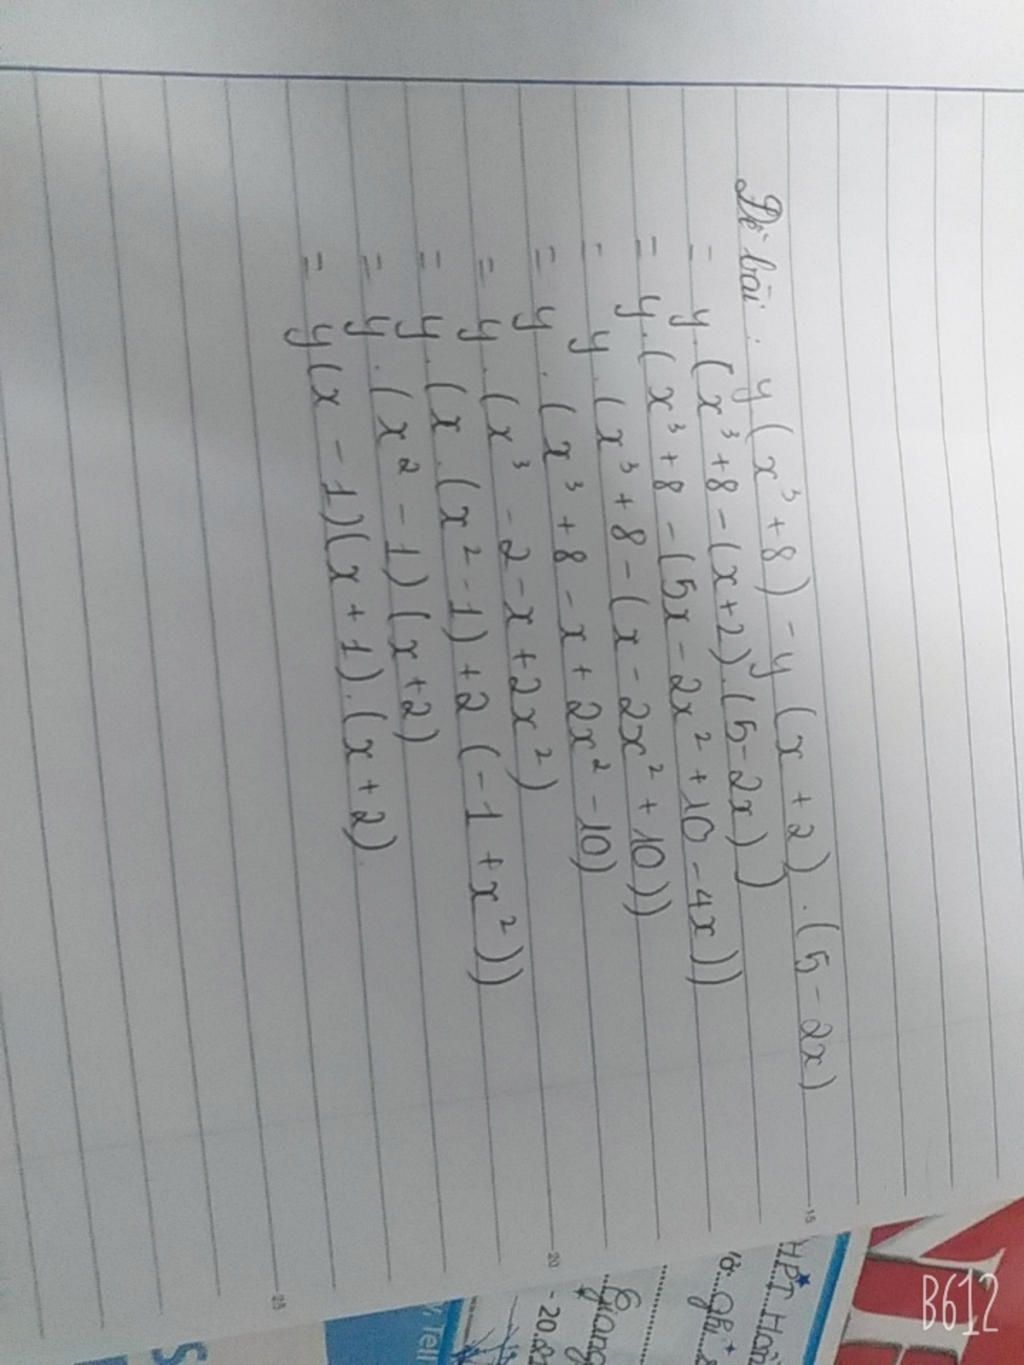 Đề bài : y(x³+8) - y(x+2).(5-2x)
= y.(x³+8-(x+2).(5-2x))
= y.(x³+8-(5x-2x²+10-4x))
= y.(x³+8-(x-2x²+10))
= y.(x³+8-x+2x²-10)
= y.(x³-2-x+2x²)
= y.(x.(x²-1)+2(-1+x²))
= y.(x²-1)(x+2)
= y(x-1)(x+1).(x+2)
15
20
25
Giang
B612